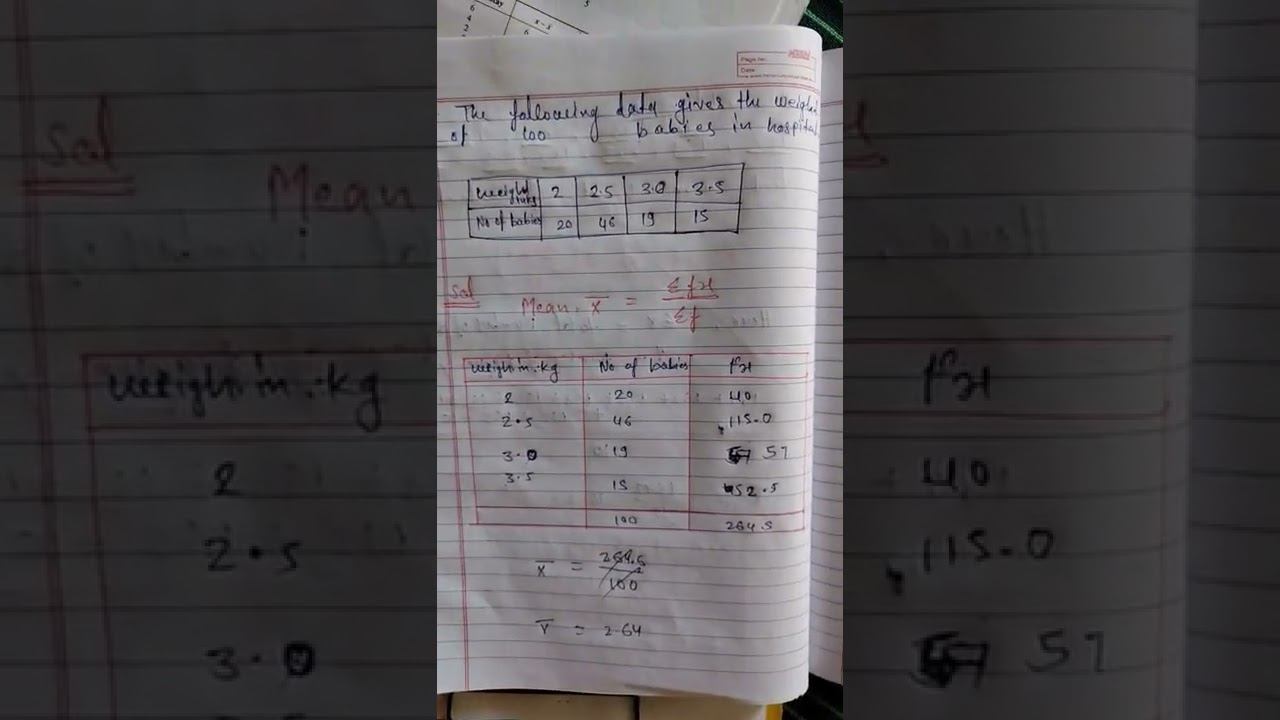 Page No.
Date
The following data gives the weight
of 100 babies in hospital
Weight in kg 2 2.5 3.0 3.5
No of babies 20 46 19 15
Sol Mean. x̄ = Σfx / Σf
Weight in kg No of babies fx
2 20 40
2.5 46 115.0
3.0 19 57
3.5 15 52.5
100 264.5
x̄ = 264.5 / 100
x̄ = 2.64